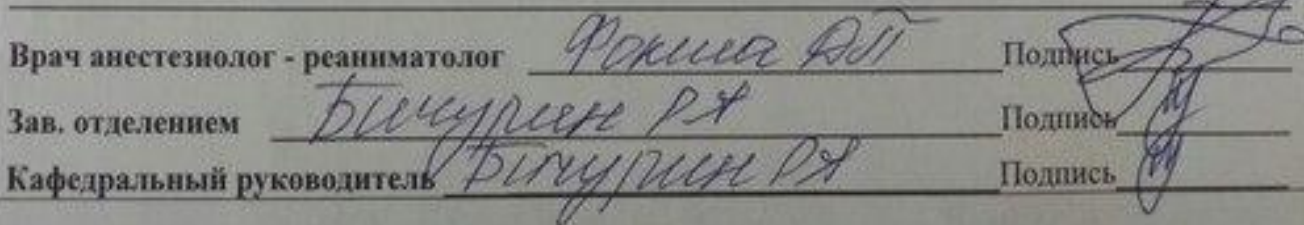 Врач анестезиолог - реаниматолог Фокина ДП Подпись
Зав. отделением Бичурин РА Подпись
Кафедральный руководитель Бичурин РА Подпись